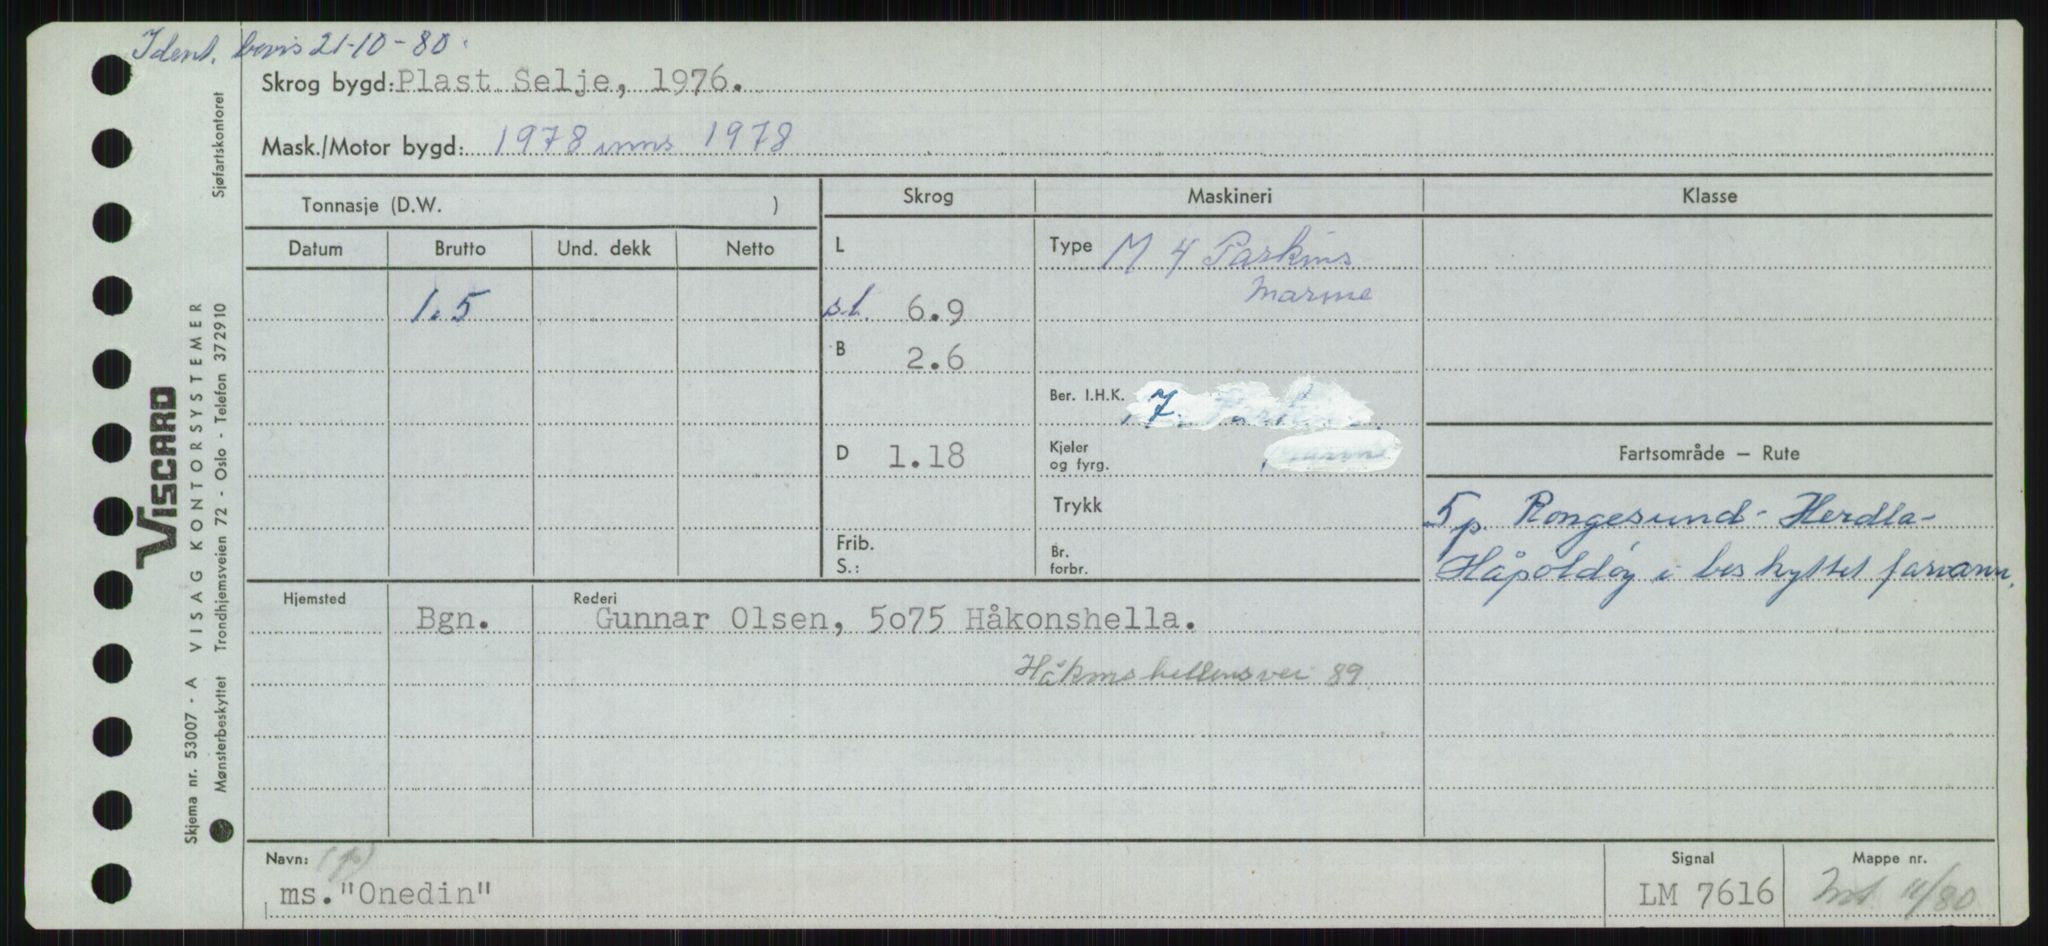 Ident. bevis 21-10-80
Skrog bygd: Plast Selje, 1976.
Mask./Motor bygd: 1978 inns 1978
Tonnasje (D.W. )
Skrog
Maskineri
Klasse
Datum
Brutto
Und. dekk
Netto
L
Type M 4 Parkins
marine
1.5
s.l. 6.9
B 2.6
Ber. I.H.K. 7.
D 1.18
Kjeler
og fyrg.
Fartsområde — Rute
Trykk
5 p. Rongesund - Herdla -
Håpoldøy i beskyttet farvann.
Frib.
S.:
Br.
forbr.
Hjemsted
Bgn.
Rederi
Gunnar Olsen, 5o75 Håkonshella.
Håkonshellensvei 89
Navn: (p)
ms. "Onedin"
Signal
LM 7616
Mappe nr.
11/80
Sjøfartskontoret
VISCARD
Skjema nr. 53007 - A VISAG KONTORSYSTEMER
Mønsterbeskyttet Trondhjemsveien 72 - Oslo - Telefon 372910